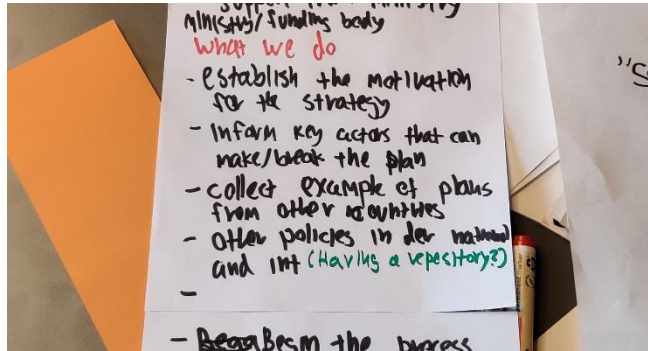 support from ministry
ministry/funding body
what we do
- establish the motivation
for the strategy
- Inform key actors that can
make/break the plan
- collect example of plans
from other countries
- other policies in der national
and int (Having a repository?)
-
- Begin the process
"S